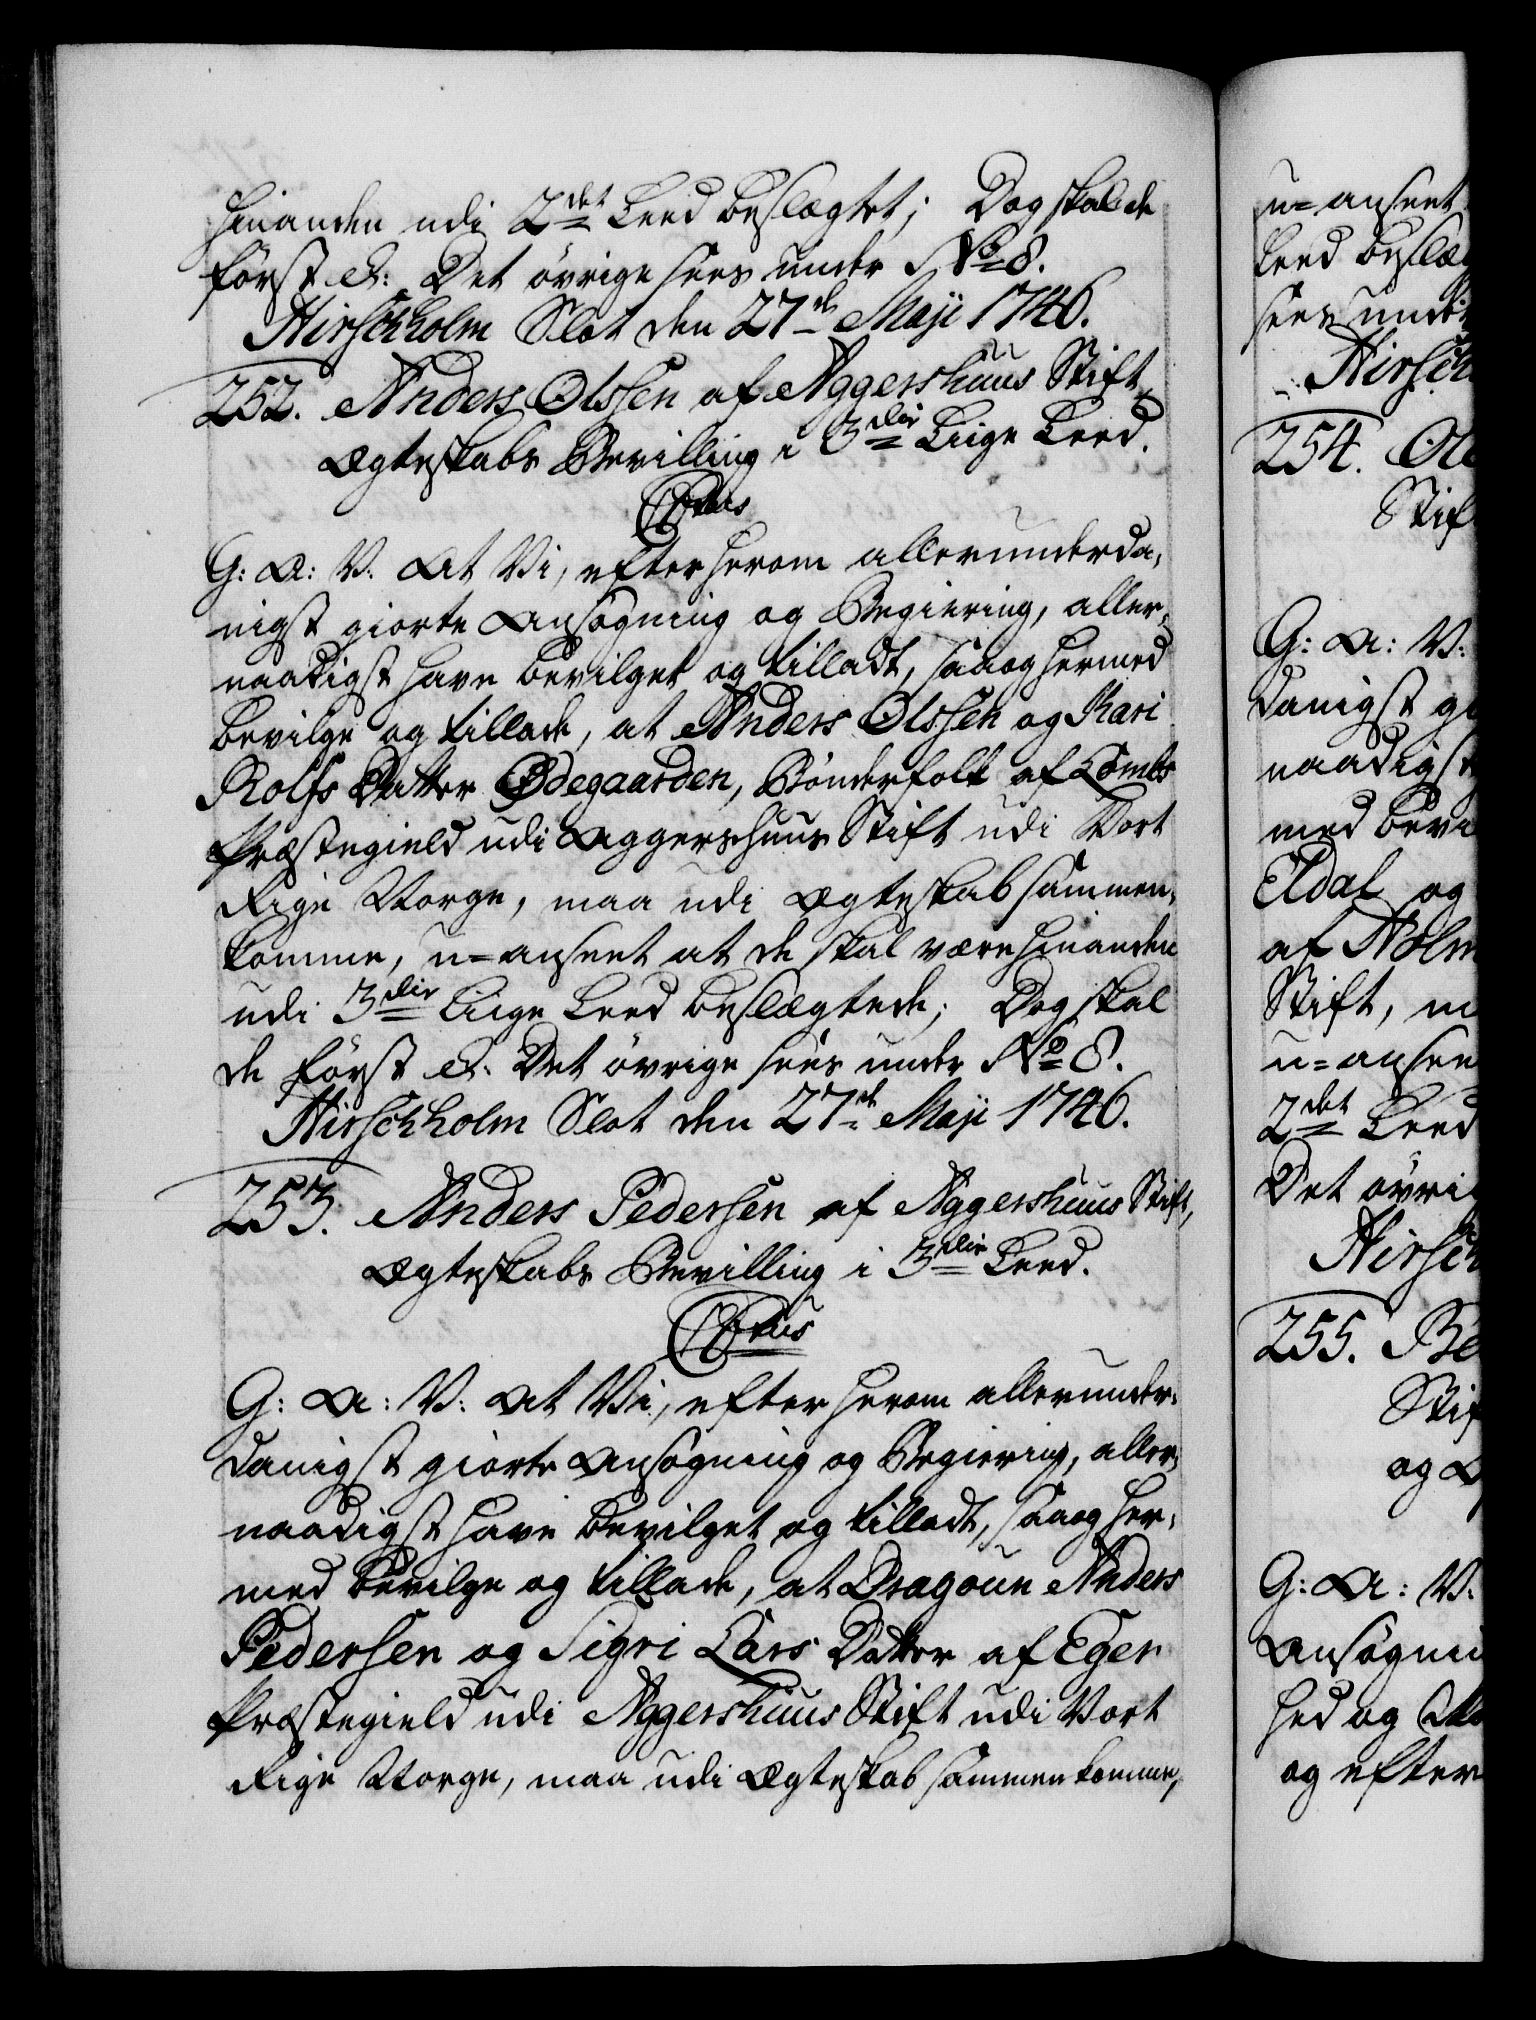 hinanden udi 2det Leed beslægtet; Dog skal de
först &c. Det övrige sees under No 8.
Hirschholm Slot den 27de Maji 1746.
252. Anders Olssen af Aggershuus Stift
Ægteskabs Bevilling i 3die Liige Leed.
C6tus
G: A: V. At Vi, efter herom allerunderda-
nigst giorte Ansögning og Begiering, aller-
naadigst have bevilget og tilladt, saa og hermed
bevilge og tillade, at Anders Olssen og Kari
Rolfs Datter Ødegaarden, Bönderfolk af Lombs
Præstegield udi Aggershuus Stift udi Vort
Rige Norge, maa udi Ægteskab sammen-
komme, u=anseet at de skal være hinanden
udi 3die Liige Leed beslægtede; Dog skal
de först &c. Det övrige sees under No 8.
Hirschholm Slot den 27de Maji 1746.
253. Anders Pedersen af Aggershuus Stift,
Ægteskabs Bevilling i 3die Leed.
C6tus
G: A: V: At Vi, efter herom allerunder-
danigst giorte Ansögning og Begiering, aller-
naadigst have bevilget og tilladt, saa og her-
med bevilge og tillade, at Dragoun Anders
Pedersen og Sigri Lars Datter af Eger
Præstegield udi Aggershuus Stift udi Vort
Rige Norge, maa udi Ægteskab sammenkomme,
u=anseet
Leed beslæ
sees under
Hirsch
254. Ole
Stif
G: A: V:
danigst gi
naadigst
med bevi
Eldal og
af Holm
Stift, m
u=ansee
2det Leed
Det övri
Hirsch
255. Be
Stif
og
G: A: V:
Ansögni
hed og
og efter